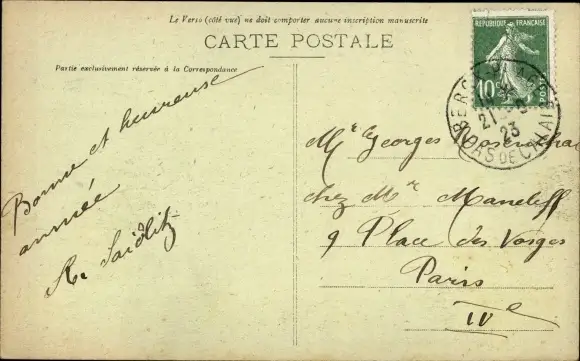 Le Verso (côté vue) ne doit comporter aucune inscription manuscrite
CARTE POSTALE
Partie exclusivement réservée à la Correspondance
Bonne et heureuse
année
A. Saidlitz
RÉPUBLIQUE FRANÇAISE
10
POSTES
BERCK-PLAGE
21
23
PAS DE CALAIS
Mr Georges Rosenthal
chez Mr Mandeff
9 Place des Vosges
Paris
IVe